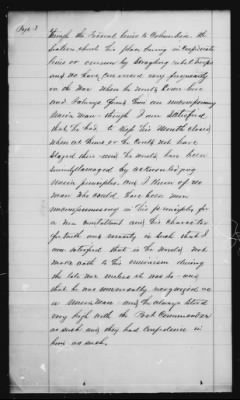 Page 3
through the Federal lines to Columbia. the
Station which his place being in
lines or overrun by straggling rebel troops
and we have conversed very frequently
on the War when he would come here
and I always found him an uncompromising
Union man - though I am satisfied
that he had to keep his mouth closed
when at home or he could not have
stayed there and he would have been
damaged by acknowledging
Union principles. and I know of no
man who could have been more
uncompromising in his principles for
a non combatant and his character
for truth and veracity is such that I
am satisfied that is he would not
make oath to his unionism during
the late war unless it was so - and
that he was universally recognized as
a Union man and he always stood
very high with the Post Commander
as such and they had confidence in
him as such.